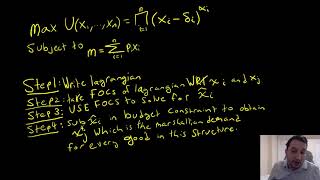 max U(x₁,...,xₙ) = ∏ⁿᵢ₌₁ (xᵢ - δᵢ)^αᵢ
Subject to m = ∑ⁿᵢ₌₁ pᵢxᵢ
Step 1: Write lagrangian
Step 2: take FOCs of lagrangian WRT xᵢ and xⱼ
Step 3: USE FOCs to solve for x̃ᵢ
Step 4: Sub x̃ᵢ in budget constraint to obtain
xⱼ which is the marshallian demand
for every good in this structure.